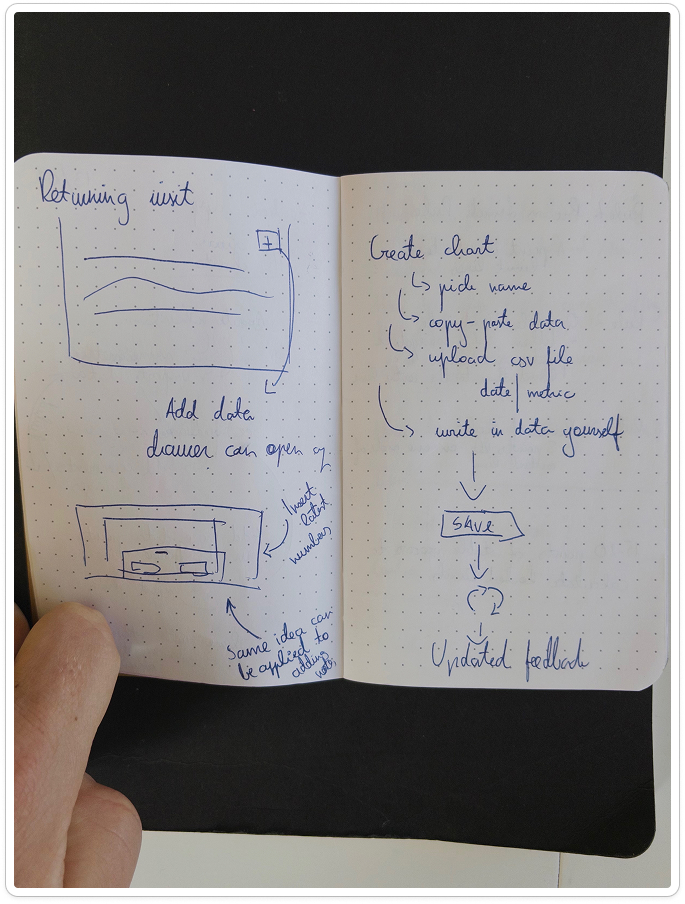 Returning visit
+
Add data
drawer can open up
Insert
latest
numbers
Same idea can
be applied to
adding
notes
Create chart
pick name
copy-paste data
upload csv file
date | metric
write in data yourself
SAVE
Updated feedback